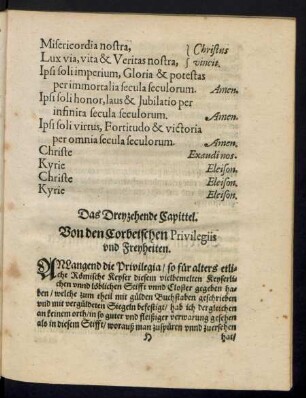 Misericordia nostra, } Christus
Lux via, vita & Veritas nostra, } vincit.
Ipsi soli imperium, Gloria & potestas
per immortalia secula seculorum. Amen.
Ipsi soli honor, laus & Jubilatio per
infinita secula seculorum. Amen.
Ipsi soli virtus, Fortitudo & victoria
per omnia secula seculorum. Amen.
Christe Exaudi nos.
Kyrie Eleison.
Christe Eleison.
Kyrie Eleison.
Das Dreyzehende Capittel.
Von den Corbeischen Privilegiis
vnd Freyheiten.
ANLangend die Privilegia / so für alters etli-
che Römische Keyser diesem vielbemelten Keyserli-
chen vnnd löblichen Stifft vnnd Closter gegeben ha-
ben / welche zum theil mit gülden Buchstaben geschrieben
vnd mit vergüldeten Siegeln befestigt / hab ich dergleichen
an keinem orth / in so guter vnd fleißiger verwarung gesehen
als in diesem Stifft / worauß man zuspüren vnnd zuersehen
hat /